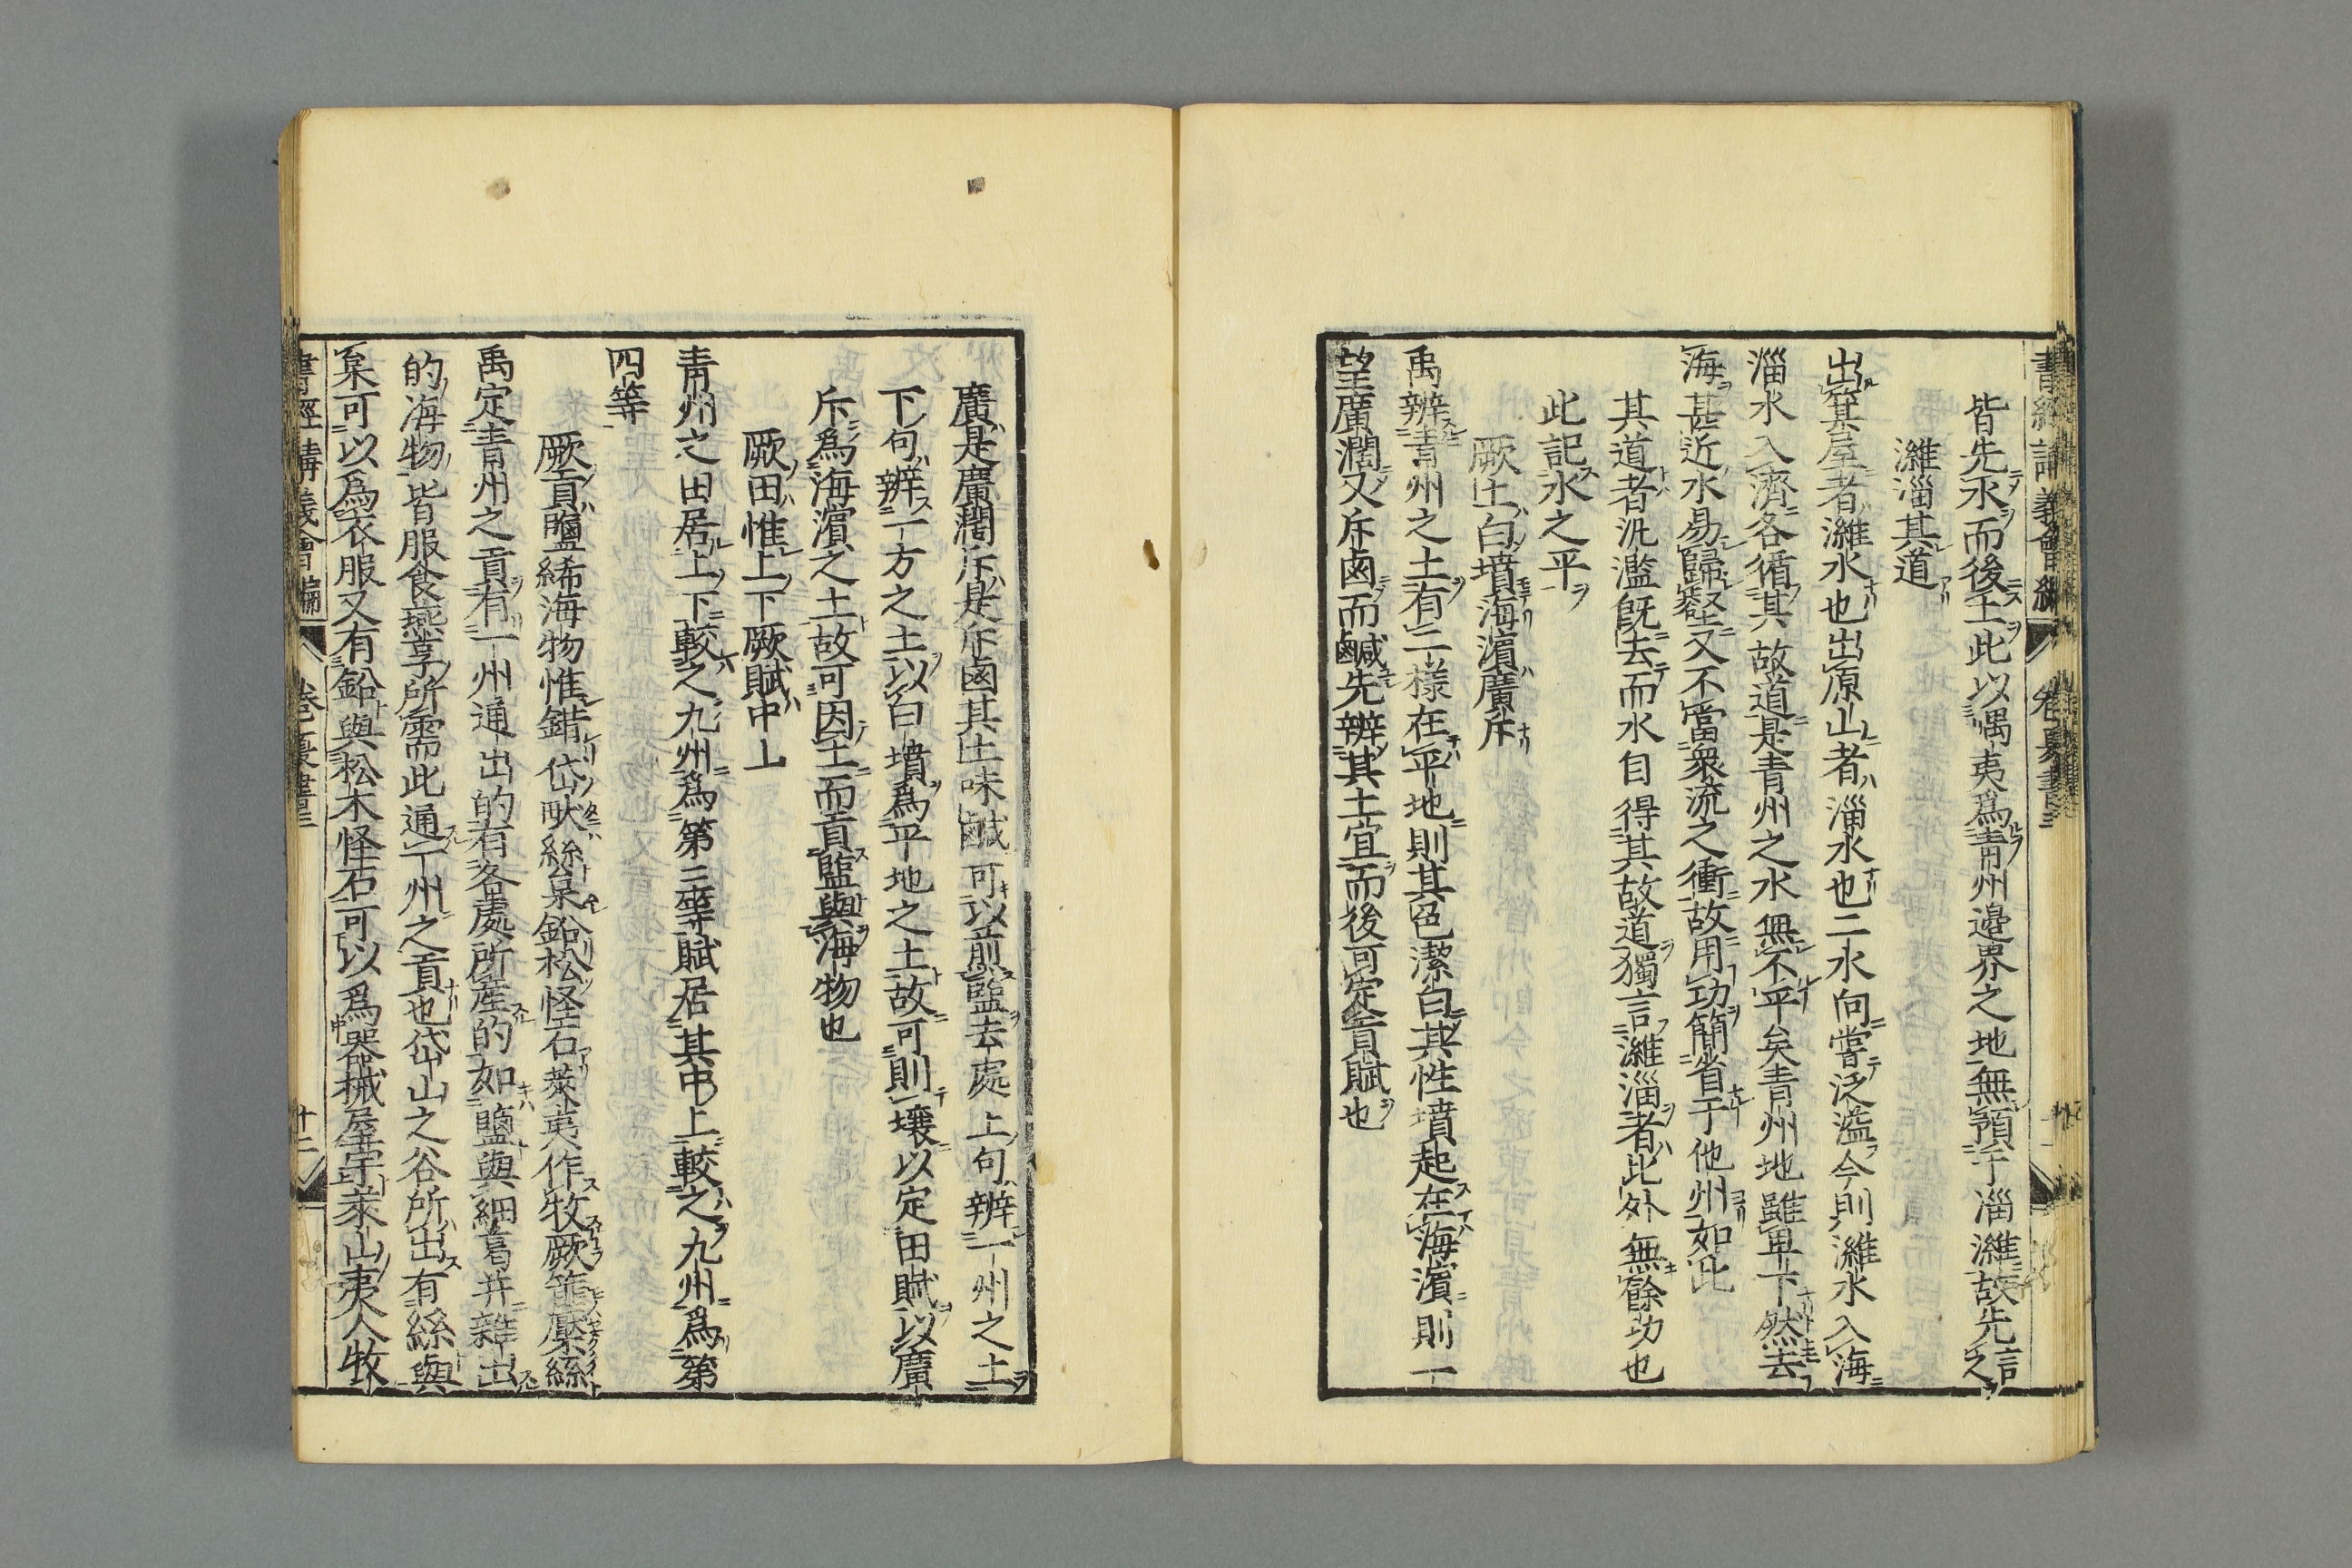 皆先水而後土此以嵎夷爲靑州邊界之地無預于淄濰故先言之
濰淄其道
出箕屋者濰水也出原山者淄水也二水向嘗泛溢今則濰水入海
淄水入濟各循其故道是青州之水無不平矣青州地雖卑下然去
海甚近水易歸壑又不當衆流之衝故用功簡省于他州如此
其道者汎濫旣去而水自得其故道獨言濰淄者此外無餘功也
此記水之平
厥土白墳海濱廣斥
禹辨青州之土有二樣在平地則其色潔白其性墳起在海濱則一
望廣濶又斥鹵而鹹先辨其土宜而後可定貢賦也
廣是廣濶斥是斥鹵其土味鹹可以煎鹽去處上句辨一州之土
下句辨一方之土以白墳爲平地之土故可則壤以定田賦以廣
斥爲海濱之土故可因土而貢鹽與海物也
厥田惟上下厥賦中上
靑州之田居上下較之九州爲第三等賦居其中上較之九州爲第
四等
厥貢鹽絺海物惟錯岱畎絲枲鉛松怪石萊夷作牧厥篚檿絲
禹定青州之貢有一州通出的有各處所産的如鹽與細葛并雜出
的海物皆服食燕享所需此通一州之貢也岱山之谷所出有絲與
枲可以爲衣服又有鉛與松木怪石可以爲器械屋宇萊山夷人牧
書經講義會編
卷三夏書三
十二